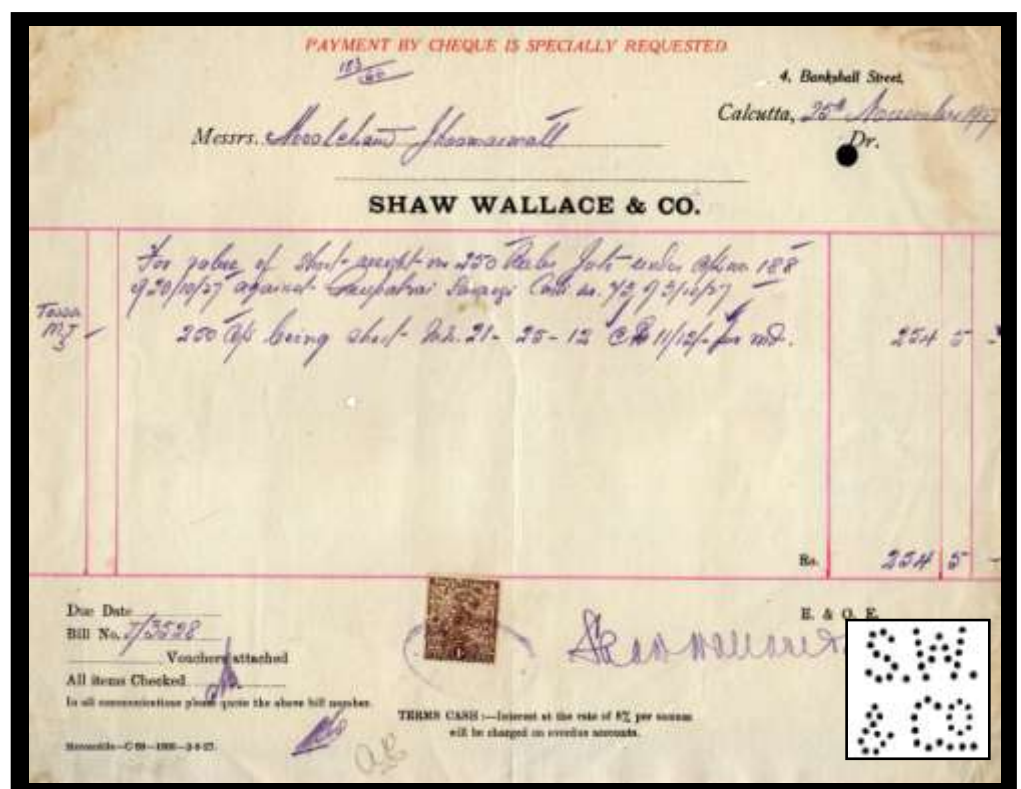 PAYMENT BY CHEQUE IS SPECIALLY REQUESTED
183/60
4, Bankshall Street,
Calcutta, 25th November 1927
Messrs. Moolchand
Dr.
SHAW WALLACE & CO.
For value of short weight on 250 Bales Jute under 188
of 20/10/27 against no. 43 of 3/10/27
Tossa
MJ
250 being short Mds. 21-25-12 @ Rs 11/12/- per md. 254 5 -
Rs. 254 5 -
Due Date
Bill No. J/3528
Vouchers attached
All items Checked
In all communications please quote the above bill number.
E. & O. E.
Shaw Wallace & Co
TERMS CASH :—Interest at the rate of 8% per annum
will be charged on overdue accounts.
S.W.
& Co